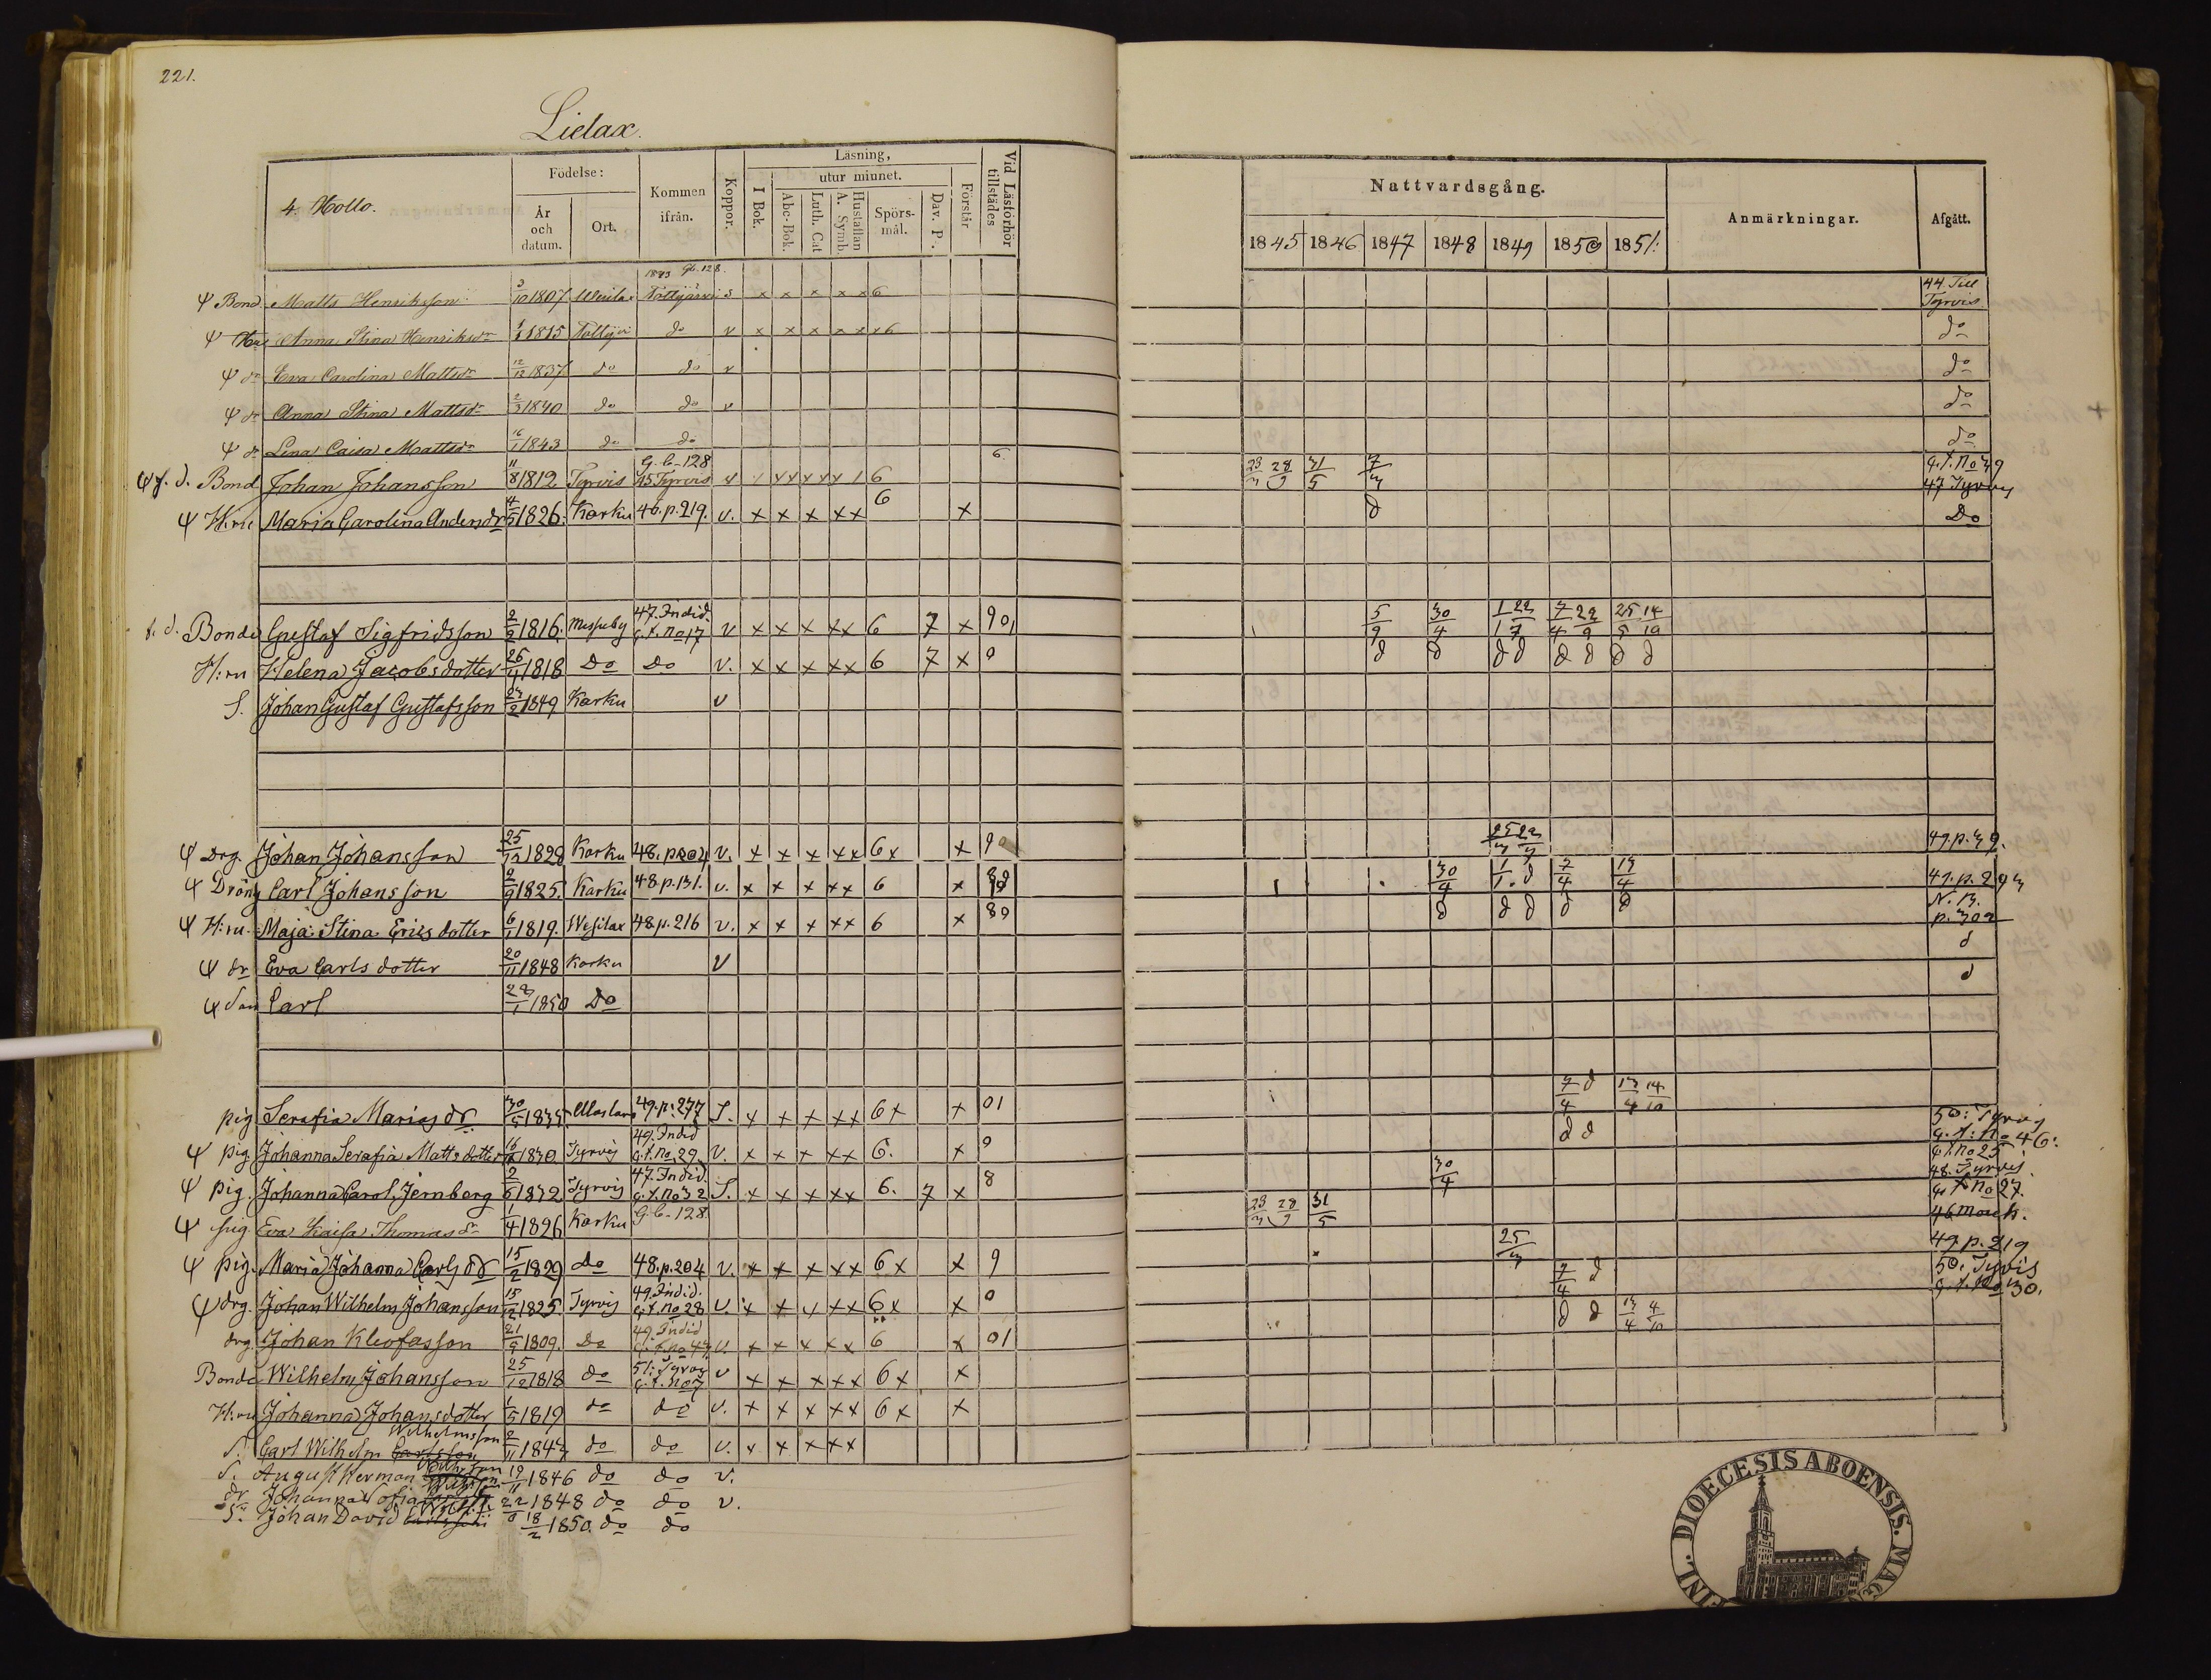 221.
Lielax.
4. Hollo.
Födelse:
År och datum.
Ort.
Kommen ifrån.
Koppor.
Läsning,
utur minnet.
I Bok.
Abc-Bok.
Luth. Cat
Hustaflan A. Symb.
Spörs-mål.
Dav. P.
Förstår
Vid Läsförhör tillstädes
Nattvardsgång.
1845 1846 1847 1848 1849 1850 1851:
Anmärkningar.
Afgått.
1843 Gb. 128.
ψ Bond Matts Henriksson 3/10 1807 s x x x x x 6 44. Till Tyrvis
ψ Anna Stina Henriksdr 1815 do v x x x x x x 6 do
ψ dr Eva Carolina Mattsdr 12/12 1837. do do v do
ψ dr Anna Stina Mattsdr 2/3 1840 do do v do
ψ dr Lena Caisa Mattsdr 16/1 1843 do do do
ψ f. d. Bond Johan Johansson 11/8 1812 Tyrvis G. b- 128 45 Tyrvis 6 6 31/5 47 Tyrvis
ψ H:ru Maria Carolina Andersdr 4/5 1826. Karku 46. p. 219. v. x x x x x 6 x d Do
f. d. Bonde Gustaf Sigfridsson 2/2 1816. Messuby 47. Indid. a. t. no 17 v x x x x x 6 7 x 901 5/9 30/4 7/4 22/9 25/5 14/10
H:ru Helena Jacobsdotter 1818 Do Do v. x x x x x 6 7 x 0 d d d d d d d d
S. Johan Gustaf Gustafsson 1849 Karku v
ψ Drg. Johan Johansson 25/12 1828 Karku 48. p 204 v. x x x x x 6 x x 9 49. p. 39.
ψ Dräng Carl Johansson 2/9 1825. Karku 48. p. 131. v. x x x x x 6 x 30/4 7/4 13/4 49. p. 293
ψ H:ru Maja Stina Ericsdotter 6/1 1819. Wesilax 48. p. 216 v. x x x x x 6 x 89 d d d d d N. B. p. 302
ψ dr Eva Carlsdotter 20/11 1848 Karku v d
ψ son Carl 1850 Do d
pig Serafia Mariasdr 30/5 1835. 49. p: 277 S. x x x x x 6 x x 01 7/4 d 13/4 14/10
ψ pig. Johanna Serafia Mattsdotter 1830. Tyrvis 49. Indid a. t. no 29. v. x x x x x 6. x 0 d d 50: Tyrvis a. t: no 46:
ψ pig. Johanna Carol. Jernberg 1832 Tyrvis 47. Indid. a. t. no 32 S. x x x x x 6. 7 x 8 30/4 48. Tyrvis a. t no 27.
ψ pig Eva Kaisa Thomasdr 1/4 1826 Karku G. b- 128. 31/5
ψ pig. Maria Johanna Carlsdr 15/2 1829 do 48. p. 204 v. x x x x x 6 x x 9 25/3 49. p. 219
ψ drg. Johan Wilhelm Johansson 15/12 1825. Tyrvis 49. Indid. a. t. no 28 v. x x x x x 6 x x 0 7/4 d 50. Tyrvis a. t. No 30.
drg. Johan Kleofasson 21/9 1809. Do 49. Indid v. x x x x x 6 x 01 d d 13/4 4/10
Bonde Wilhelm Johansson 25/12 1818 do 51: Tyrvis a. t. No 7 v x x x x x 6 x x
H:ru Johanna Johansdotter 1/5 1819 do do v. x x x x x 6 x x
S. Carl Wilhelm Carlsson Wilhelmsson 2/11 1843 do do v. x x x x x
S. August Herman 19/11 1846 do do v.
dr Johanna Sofia 22/8 1848 do do v.
S. Johan David 18/2 1850. do do
FINL. DIOECESIS ABOENSIS. MAG